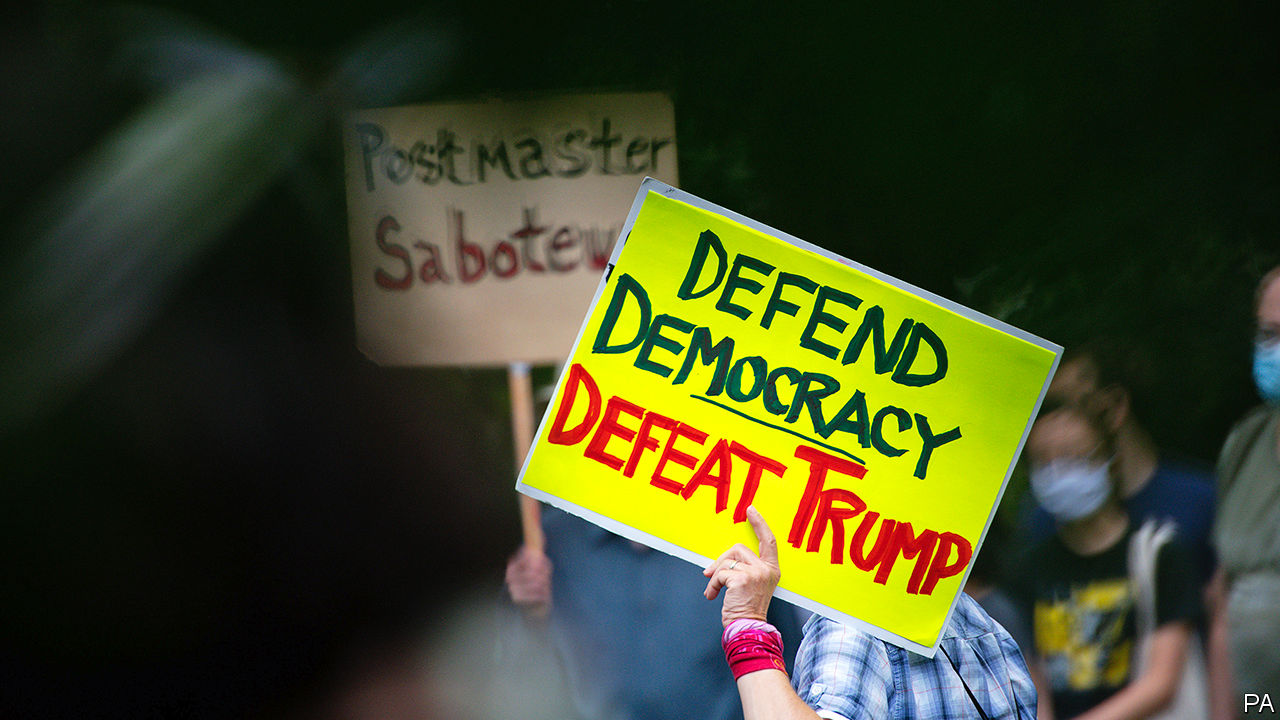 Postmaster
Saboteur
DEFEND
DEMOCRACY
DEFEAT TRUMP
PA